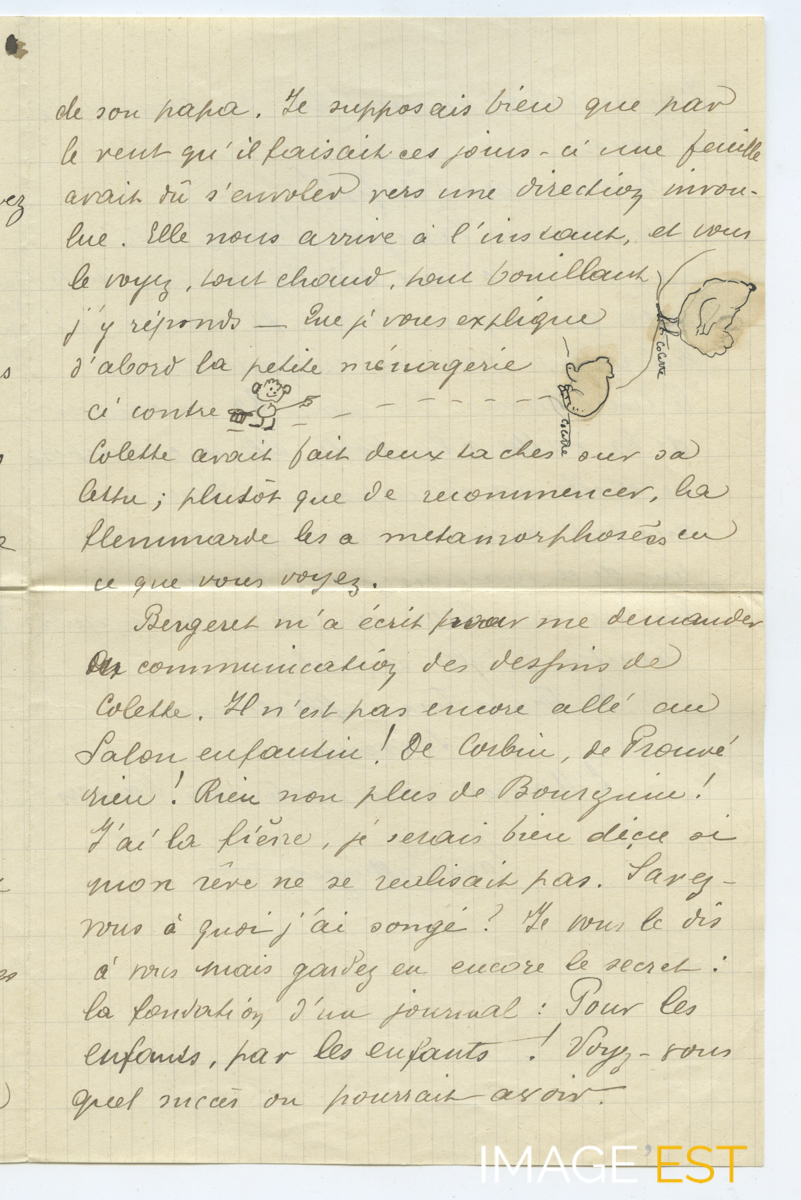 de son papa. Je supposais bien que par
le vent qu'il faisait ces jours-ci une feuille
avait dû s'envoler vers une direction invou-
lue. Elle nous arrive à l'instant, et vous
le voyez, tout chaud, tout bouillant
j'y réponds — Que je vous explique
d'abord la petite ménagerie
ci contre
Colette
Colette
Colette avait fait deux taches sur sa
lettre ; plutôt que de recommencer, la
flemmarde les a metamorphosées en
ce que vous voyez.
Bergeret m'a écrit pour me demander
communication des dessins de
Colette. Il n'est pas encore allé au
Salon enfantin ! De Corbin, de Prouvé
rien ! Rien non plus de Bourguin !
J'ai la fièvre, je serais bien déçu si
mon rêve ne se realisait pas. Savez-
vous à quoi j'ai songé ? Je vous le dis
à vous mais gardez en encore le secret :
la fondation d'un journal : Pour les
enfants, par les enfants ! Voyez-vous
quel succès on pourrait avoir.
IMAGE'EST